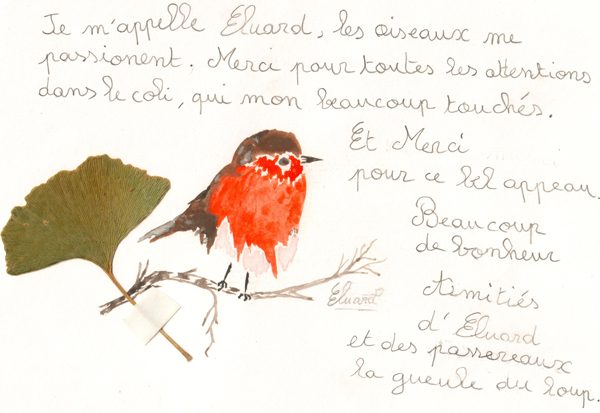 Je m'appelle Eluard, les oiseaux me
passionent. Merci pour toutes les attentions
dans le coli, qui mon beaucoup touchés.
Et Merci
pour ce bel appeau.
Beaucoup
de bonheur
Eluard
Amitiés
d'Eluard
et des passereaux
la gueule du loup.